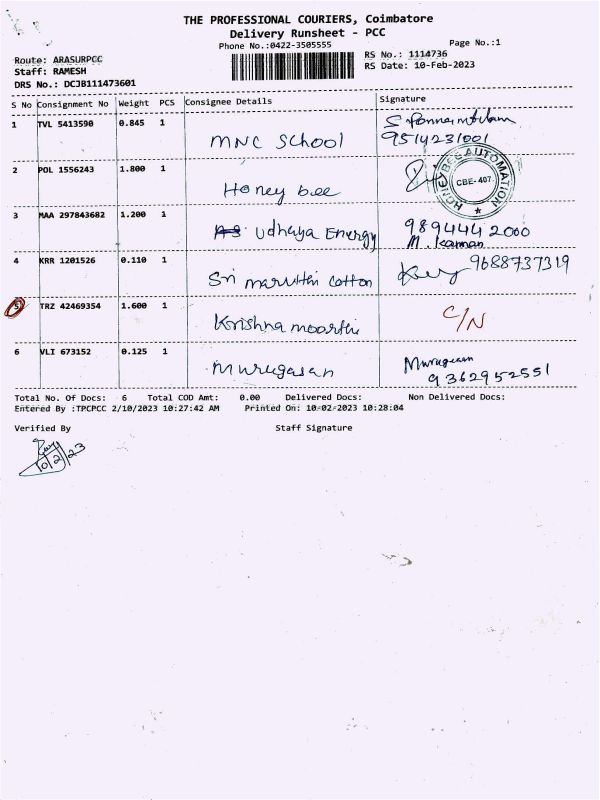 THE PROFESSIONAL COURIERS, Coimbatore
Delivery Runsheet - PCC
Phone No.:0422-3505555
Page No.:1
Route: ARASURPCC
RS No.: 1114736
Staff: RAMESH
RS Date: 10-Feb-2023
DRS No.: DCJB111473601
S No Consignment No Weight PCS Consignee Details Signature
1 TVL 5413590 0.845 1 MNC School
9514231001
2 POL 1556243 1.800 1 Honey bee
HONEYBEE AUTOMATION
CBE-407
3 MAA 297843682 1.200 1 Udhaya Energy 9894442000
M. Kannan
4 KRR 1201526 0.110 1 Sri maruthi cotton 9688737319
5 TRZ 42469354 1.600 1 Krishna moorthi C/N
6 VLI 673152 0.125 1 Murugasan Murugesan
9362952551
Total No. Of Docs: 6 Total COD Amt: 0.00 Delivered Docs: Non Delivered Docs:
Entered By :TPCPCC 2/10/2023 10:27:42 AM Printed On: 10-02-2023 10:28:04
Verified By Staff Signature
10/2/23